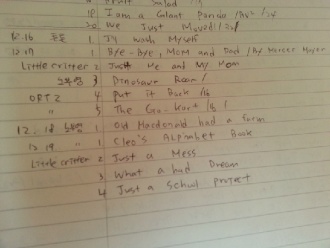 Fruit Salad
I am a Giant Panda
30 We Just Moved! / 2
12.16 1 I'll wash Myself
12.19 1 Bye-Bye, Mom and Dad / by Mercer Mayer
Little critter 2 Just Me and My Mom
3 Dinosaur Room /
ORT 2 4 Put it Back /
" 5 The Go-kart /
12.18 1 Old Macdonald had a farm
12.19 " 1 Cleo's Alphabet Book
Little critter 2 Just a Mess
3 What a bad Dream
4 Just a School project